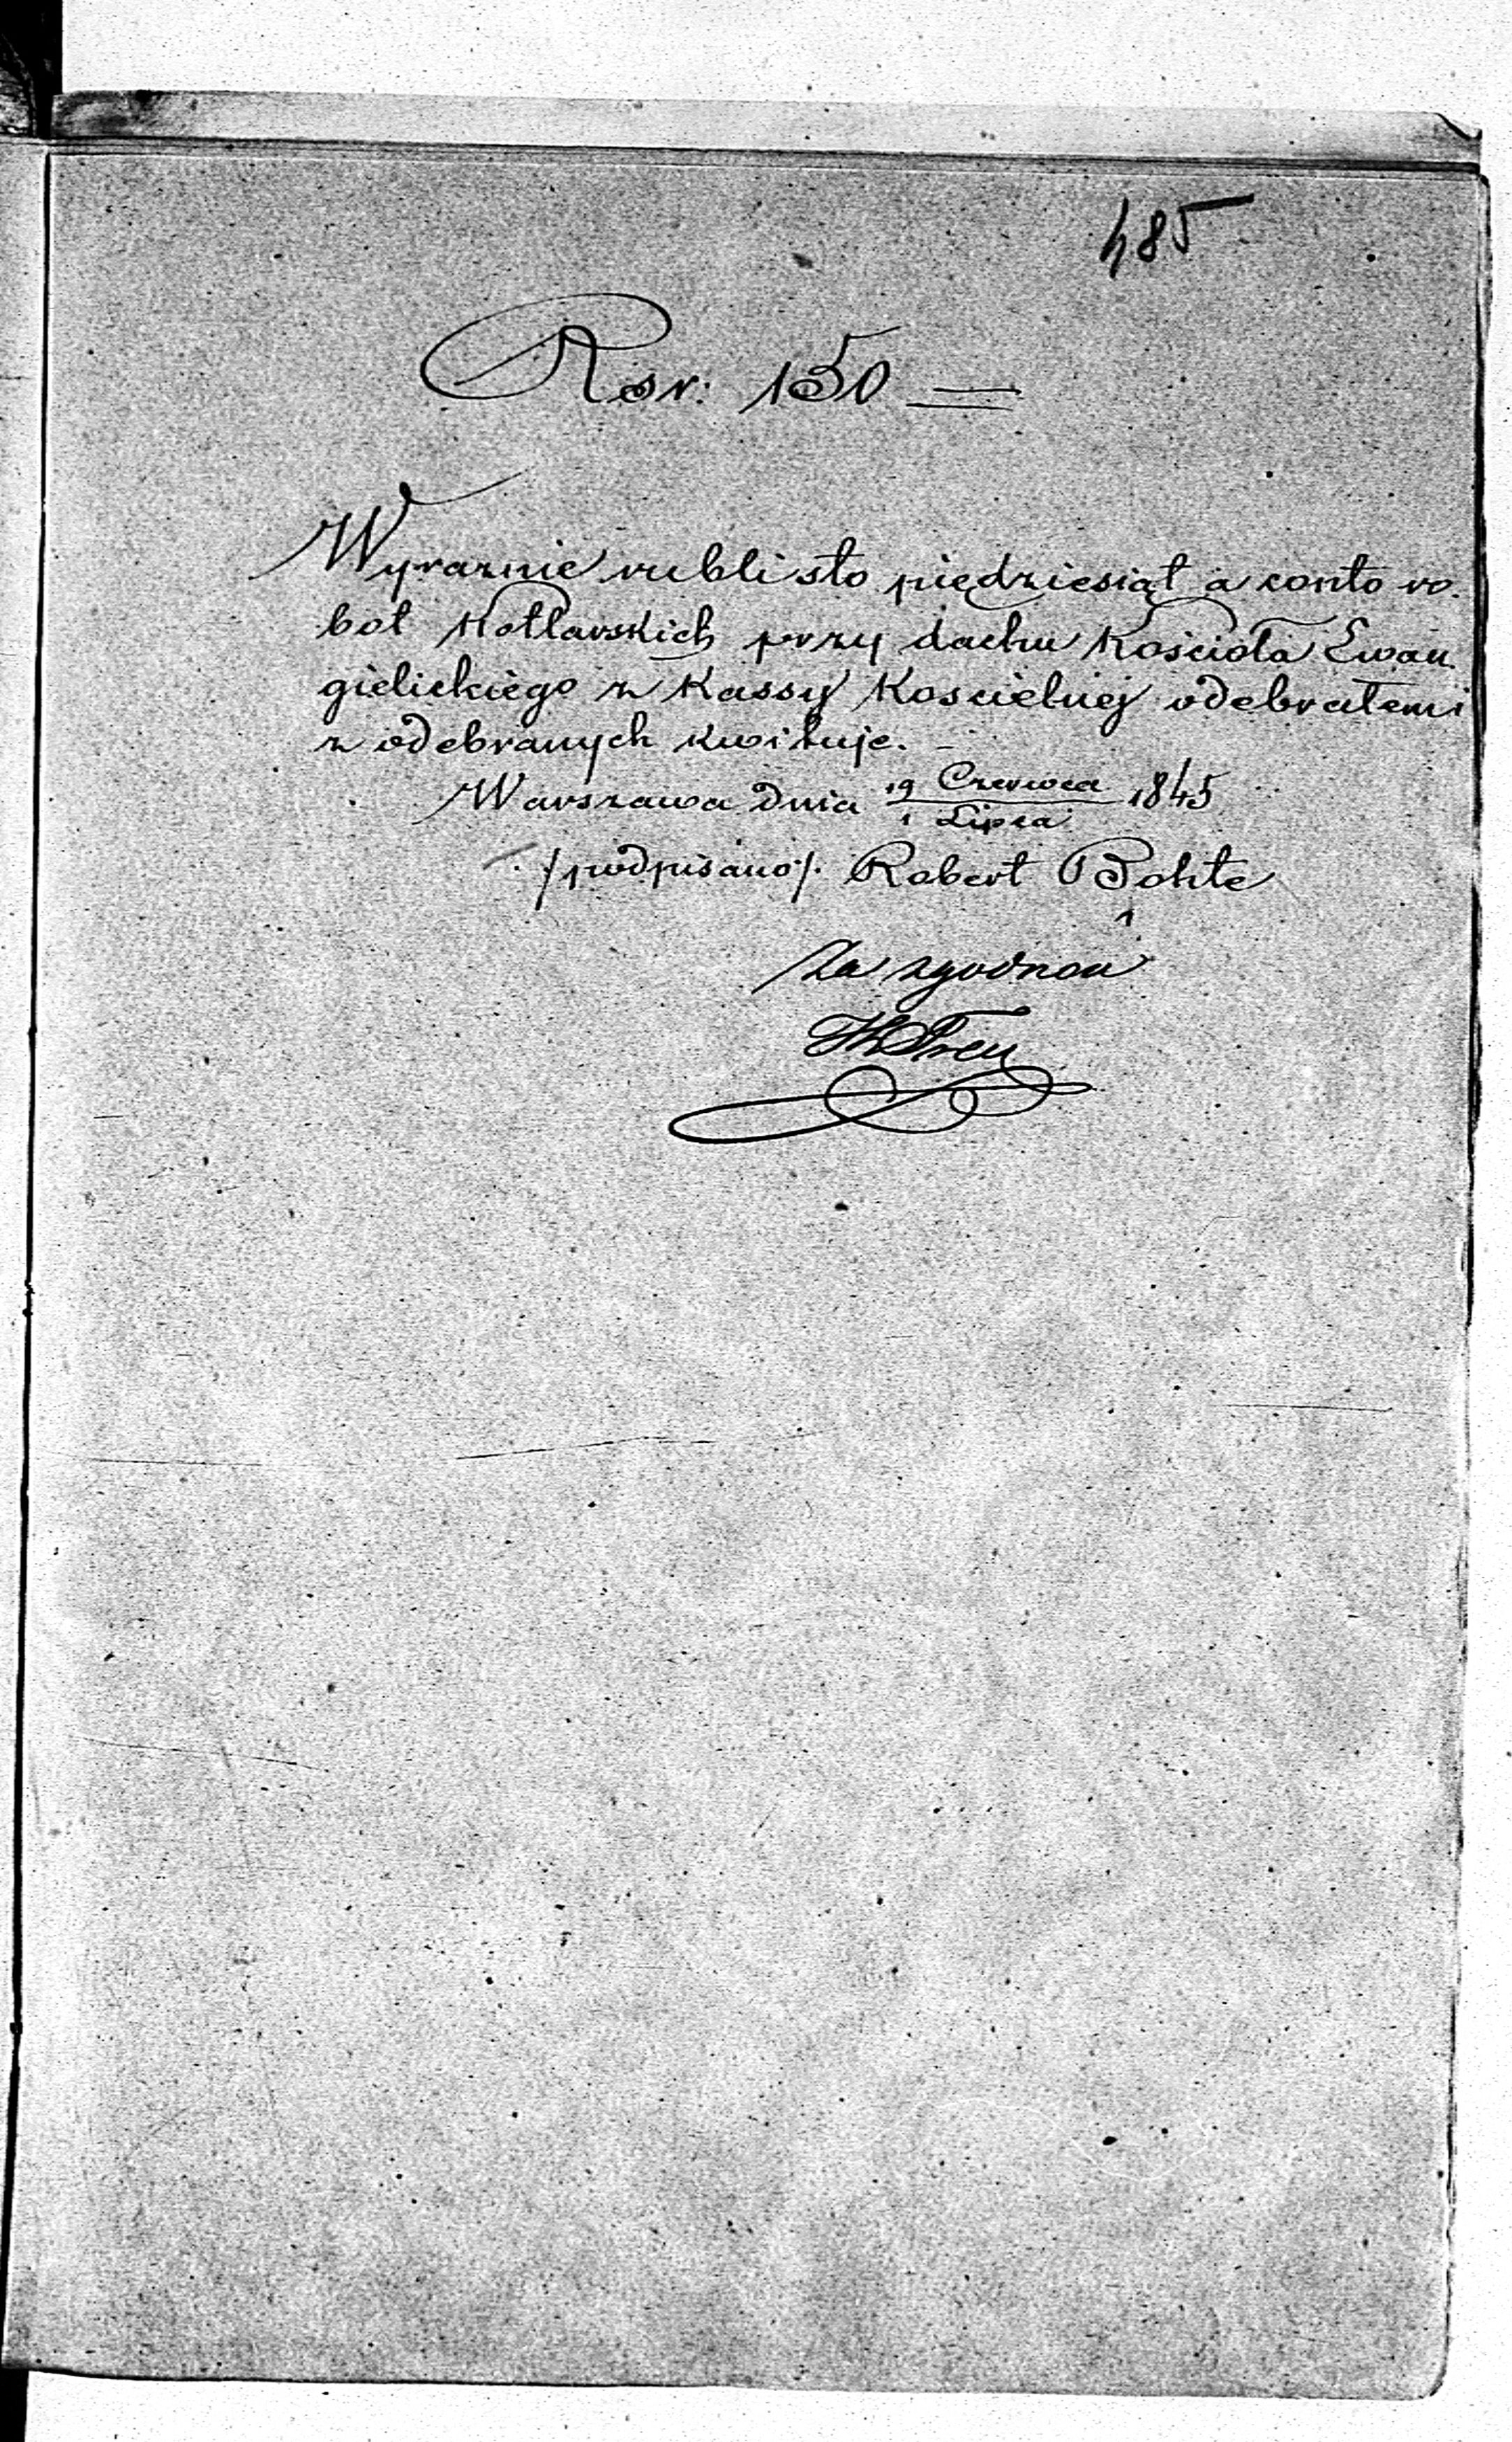 485
Rsr: 150 =
Wyraznie rubli sto piędziesiąt a conto ro-
bot Kotlarskich przy dachu Kościoła Ewan-
gielickiego z Kassy Koscielnej odebrałem i
z odebranych kwituje. -
Warszawa dnia 19 Czerwca / 1 Lipca 1845
/podpisano/. Robert Bohte
Za zgodność